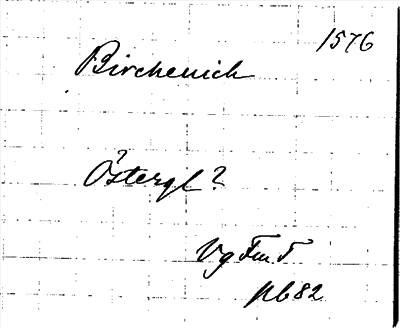 1576
Birchenich
Östergl?
Vg Fm T
p 682